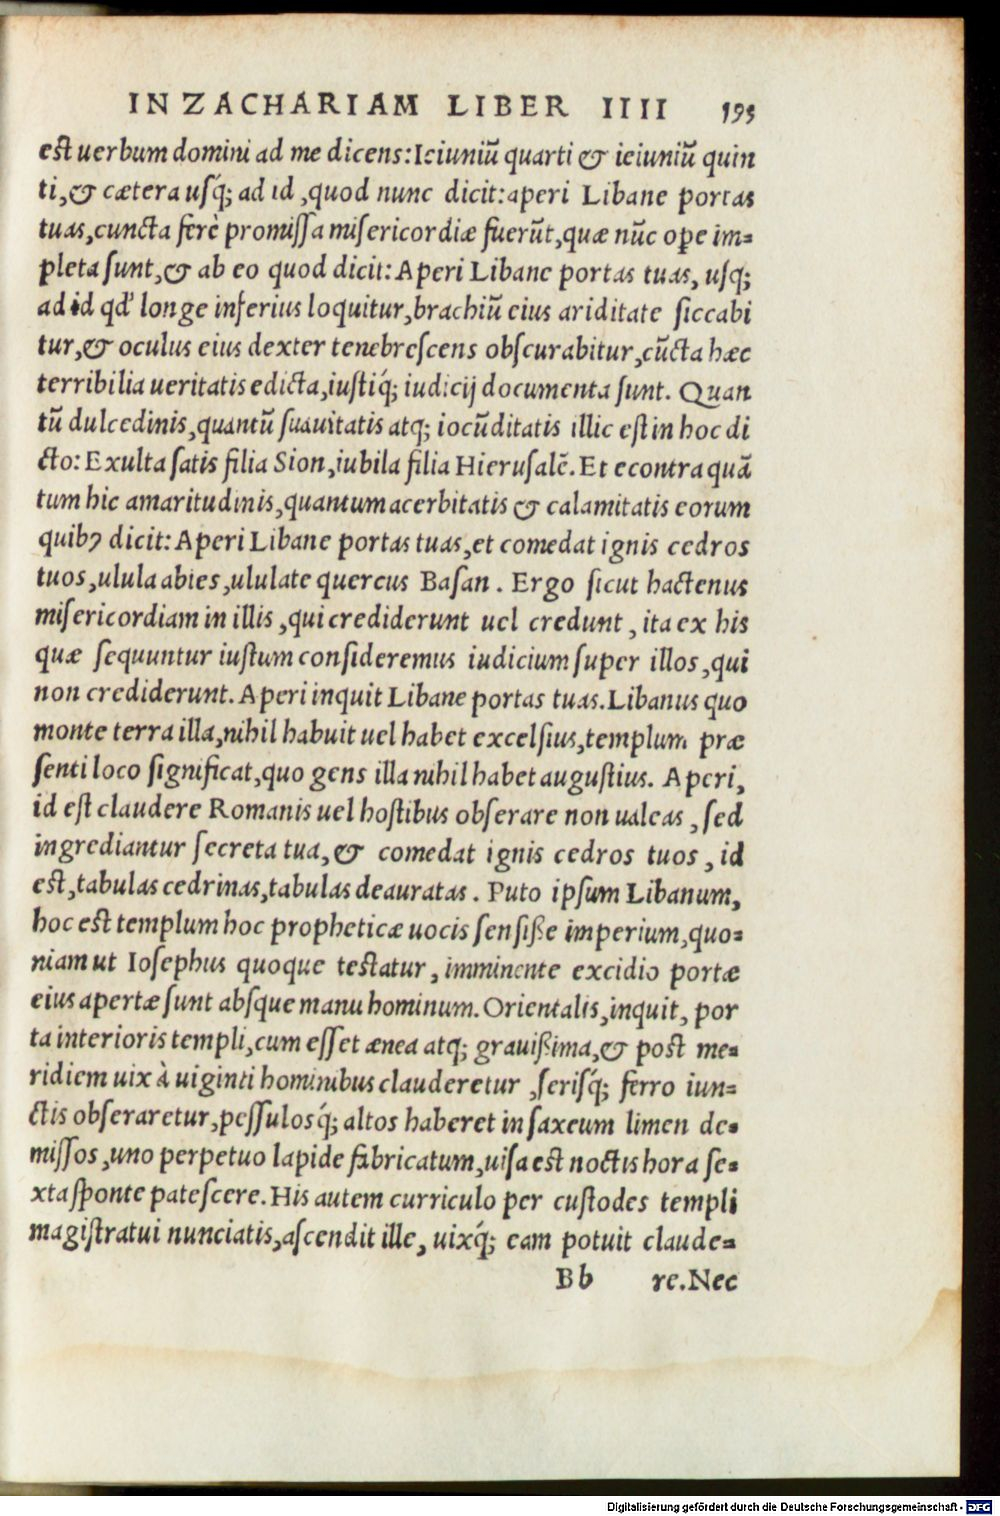 IN ZACHARIAM LIBER IIII 195
est uerbum domini ad me dicens: Ieiuniũ quarti & ieiuniũ quin
ti, & cætera usq́; ad id, quod nunc dicit: aperi Libane portas
tuas, cuncta ferè promissa misericordiæ fuerũt, quæ nũc ope im=
pleta sunt, & ab eo quod dicit: Aperi Libane portas tuas, usq;
ad id qd' longe inferius loquitur, brachiũ eius ariditate siccabi
tur, & oculus eius dexter tenebrescens obscurabitur, cũcta hæc
terribilia ueritatis edicta, iustiq́; iudicij documenta sunt. Quan
tũ dulcedinis, quantũ suauitatis atq; iocũditatis illic est in hoc di
cto: Exulta satis filia Sion, iubila filia Hierusalẽ. Et econtra quã
tum hic amaritudinis, quantum acerbitatis & calamitatis eorum
quibꝰ dicit: Aperi Libane portas tuas, et comedat ignis cedros
tuos, ulula abies, ululate quercus Basan. Ergo sicut hactenus
misericordiam in illis, qui crediderunt uel credunt, ita ex his
quæ sequuntur iustum consideremus iudicium super illos, qui
non crediderunt. Aperi inquit Libane portas tuas. Libanus quo
monte terra illa, nihil habuit uel habet excelsius, templum præ
senti loco significat, quo gens illa nihil habet augustius. Aperi,
id est claudere Romanis uel hostibus obserare non ualeas, sed
ingrediantur secreta tua, & comedat ignis cedros tuos, id
est, tabulas cedrinas, tabulas deauratas. Puto ipsum Libanum,
hoc est templum hoc propheticæ uocis sensiße imperium, quo=
niam ut Iosephus quoque testatur, imminente excidio portæ
eius apertæ sunt absque manu hominum. Orientalis, inquit, por
ta interioris templi, cum esset ænea atq; grauißima, & post me=
ridiem uix à uiginti hominibus clauderetur, serisq́; ferro iun=
ctis obseraretur, pessulosq́; altos haberet in saxeum limen de=
missos, uno perpetuo lapide fabricatum, uisa est noctis hora se=
xta sponte patescere. His autem curriculo per custodes templi
magistratui nunciatis, ascendit ille, uixq́; eam potuit claude=
Bb re. Nec
Digitalisierung gefördert durch die Deutsche Forschungsgemeinschaft - DFG